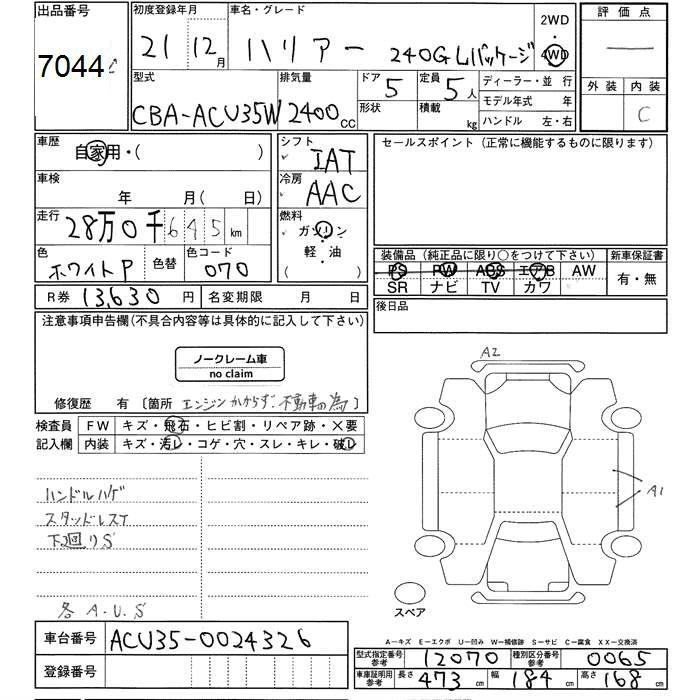 出品番号 初度登録年月 車名・グレード 2WD 評価点
7044 21年 12月 ハリアー 240G Lパッケージ 4WD
型式 排気量 ドア 定員 ディーラー・並行 外装 内装
CBA-ACU35W 2400cc 5 5人 モデル年式 年 C
形状 積載 kg ハンドル 左・右
車歴 自家用・( ) シフト IAT セールスポイント (正常に機能するものに限ります)
車検 年 月( 日) 冷房 AAC
走行 28万0千645km 燃料 ガソリン
軽・油
( )
色 ホワイトP 色替 色コード 070 装備品 (純正品に限り○をつけて下さい) 新車保証書
PS PW ABS エアB AW 有・無
SR ナビ TV カワ
R券 13,630円 名変期限 月 日 後日品
注意事項申告欄(不具合内容等は具体的に記入して下さい)
ノークレーム車
no claim
修復歴 有 〔箇所 エンジンかからず.不動車の為〕
検査員 FW キズ・飛石・ヒビ割・リペア跡・×要
記入欄 内装 キズ・汚レ・コゲ・穴・スレ・キレ・破レ
A2
A1
ハンドルハゲ
スタッドレスT
下廻りS
各 A.U.S
スペア
車台番号 ACU35-0024326
登録番号
A−キズ E−エクボ U−凹み W−補修跡 S−サビ C−腐食 XX−交換済
型式指定番号 参考 12070 種別区分番号 参考 0065
車庫証明用 参考 長さ 473cm 幅 184cm 高さ 168cm